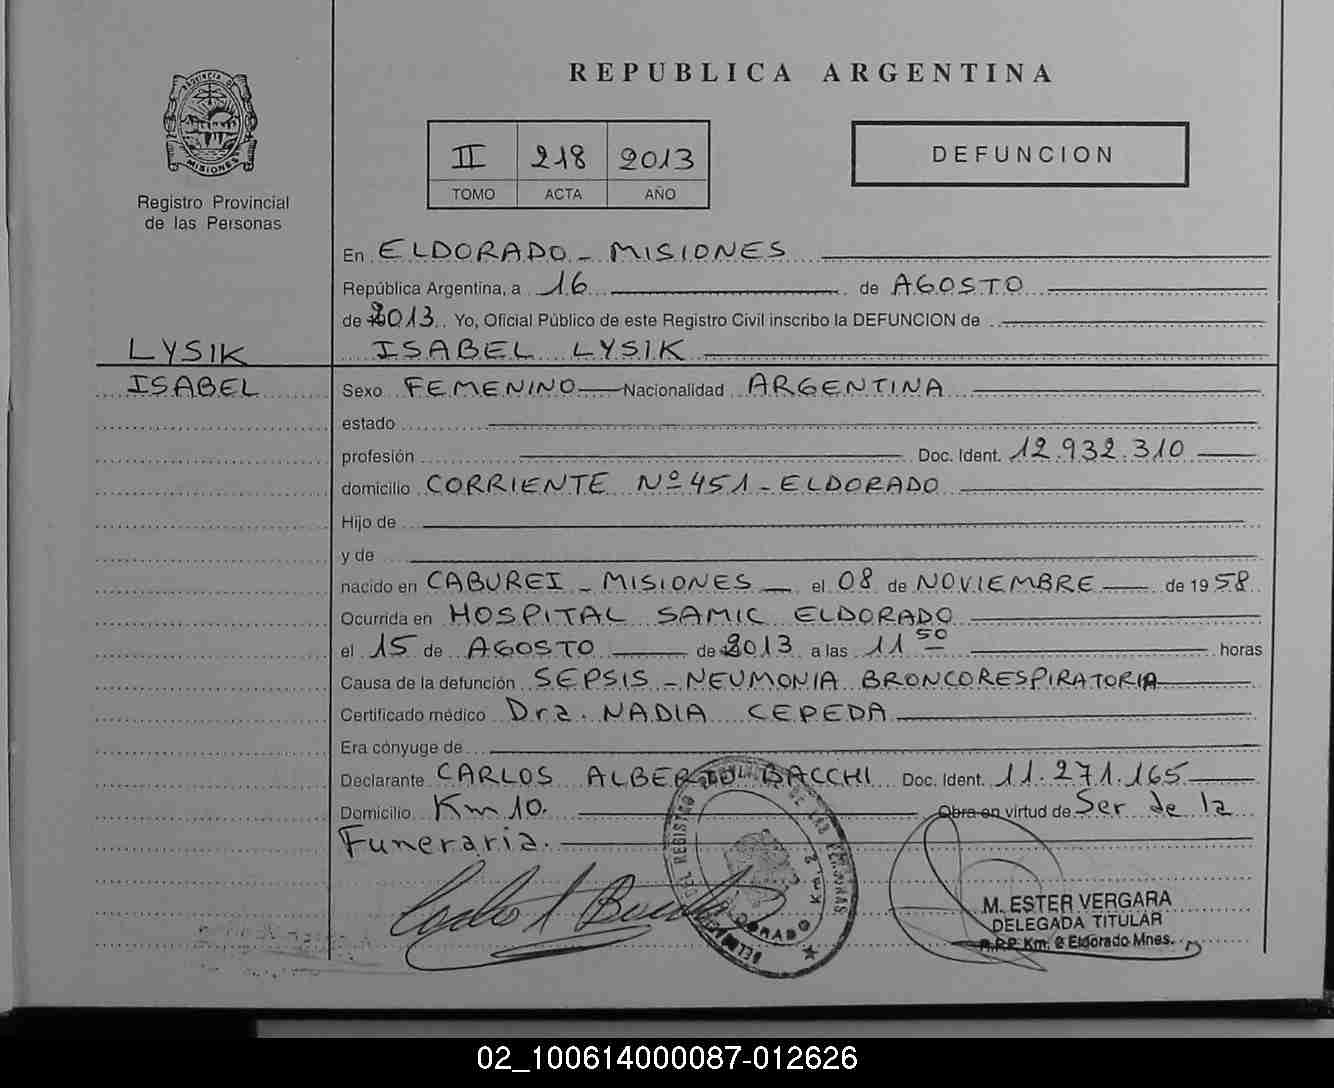 REPUBLICA ARGENTINA
PROVINCIA DE
MISIONES
Registro Provincial
de las Personas
II 218 2013
TOMO ACTA AÑO
DEFUNCION
En ELDORADO - MISIONES
República Argentina, a 16 de AGOSTO
de 2013 Yo, Oficial Público de este Registro Civil inscribo la DEFUNCION de
LYSIK
ISABEL LYSIK
ISABEL
Sexo FEMENINO Nacionalidad ARGENTINA
estado
profesión Doc. Ident. 12.932.310
domicilio CORRIENTE Nº 451 - ELDORADO
Hijo de
y de
nacido en CABUREI - MISIONES el 08 de NOVIEMBRE de 1958
Ocurrida en HOSPITAL SAMIC ELDORADO
el 15 de AGOSTO de 2013 a las 11 50 horas
Causa de la defunción SEPSIS - NEUMONIA BRONCORESPIRATORIA
Certificado médico Dra. NADIA CEPEDA
Era cónyuge de
Declarante CARLOS ALBERTO BACCHI Doc. Ident. 11.271.165
Domicilio Km 10. Obra en virtud de Ser de la
Funeraria.
REGISTRO PROVINCIAL DE LAS PERSONAS
ELDORADO Km. 2
M. ESTER VERGARA
DELEGADA TITULAR
R.P.P. Km. 2 Eldorado Mnes.
02_100614000087-012626